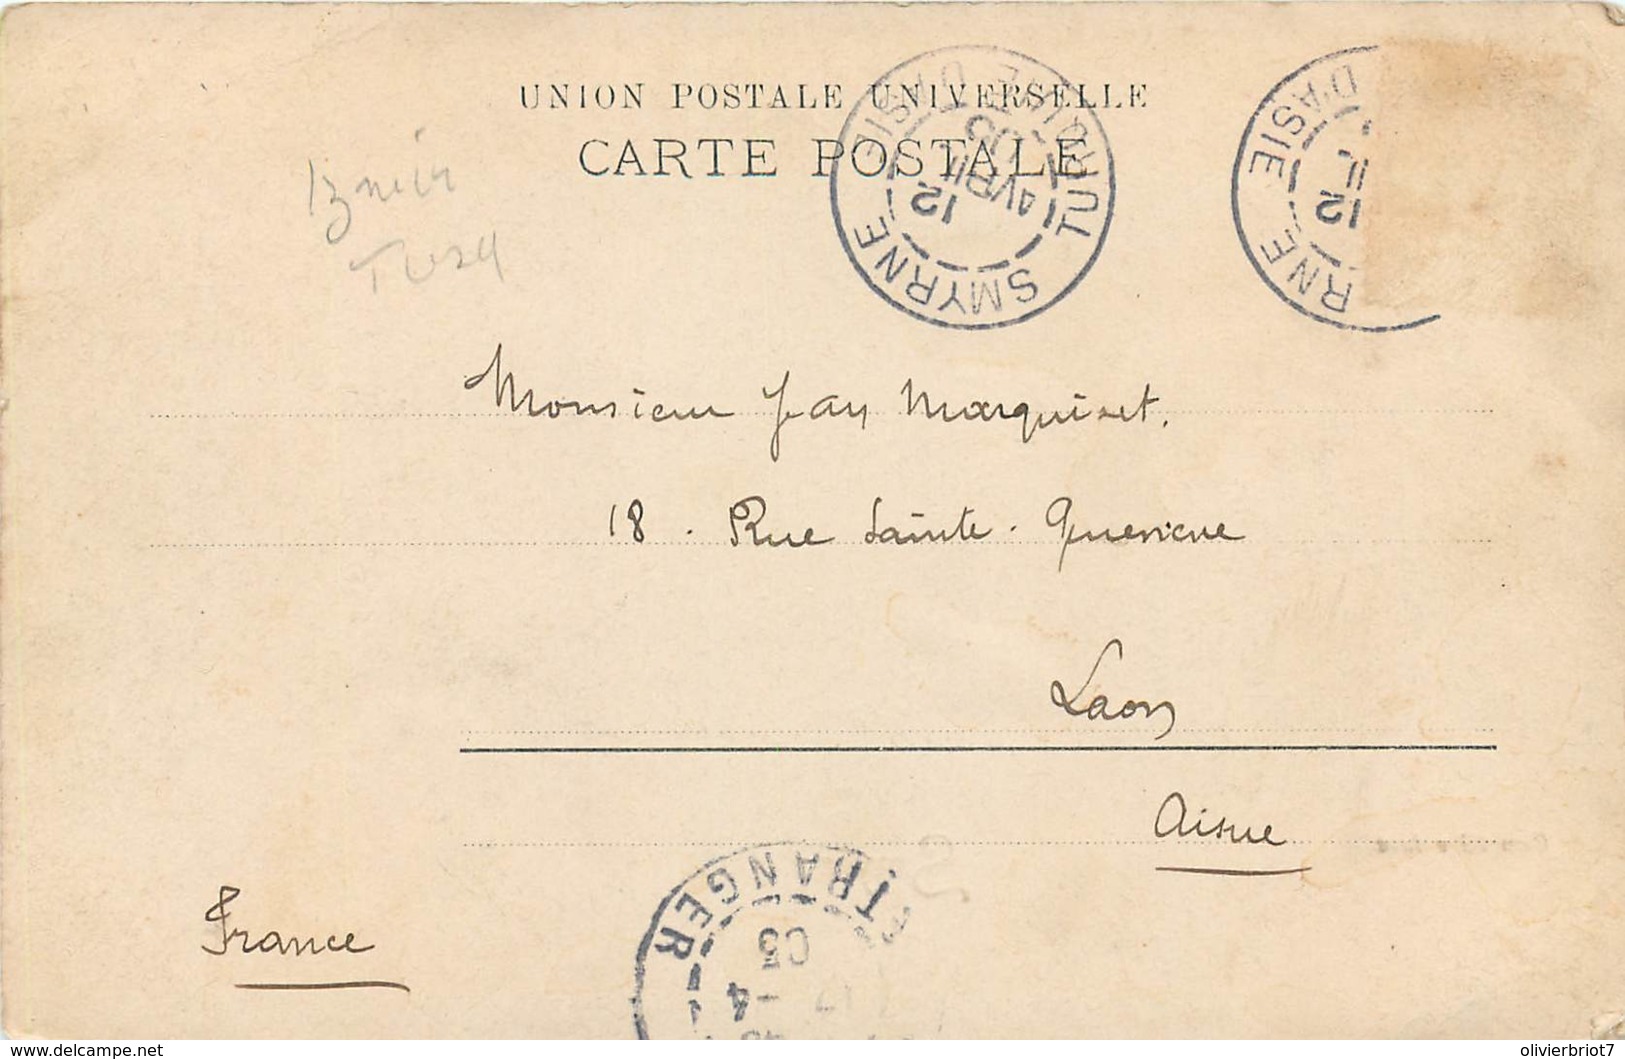 UNION POSTALE UNIVERSELLE
CARTE POSTALE
SMYRNE TURQUIE D'ASIE
12 AVRIL 03
RNE D'ASIE
12
Izmir
Monsieur Jean Marquiset.
18. Rue Sainte-Quenieue
Laon
Aisne
France
TRANGER
17 -4 03
www.delcampe.net
olivierbriot7